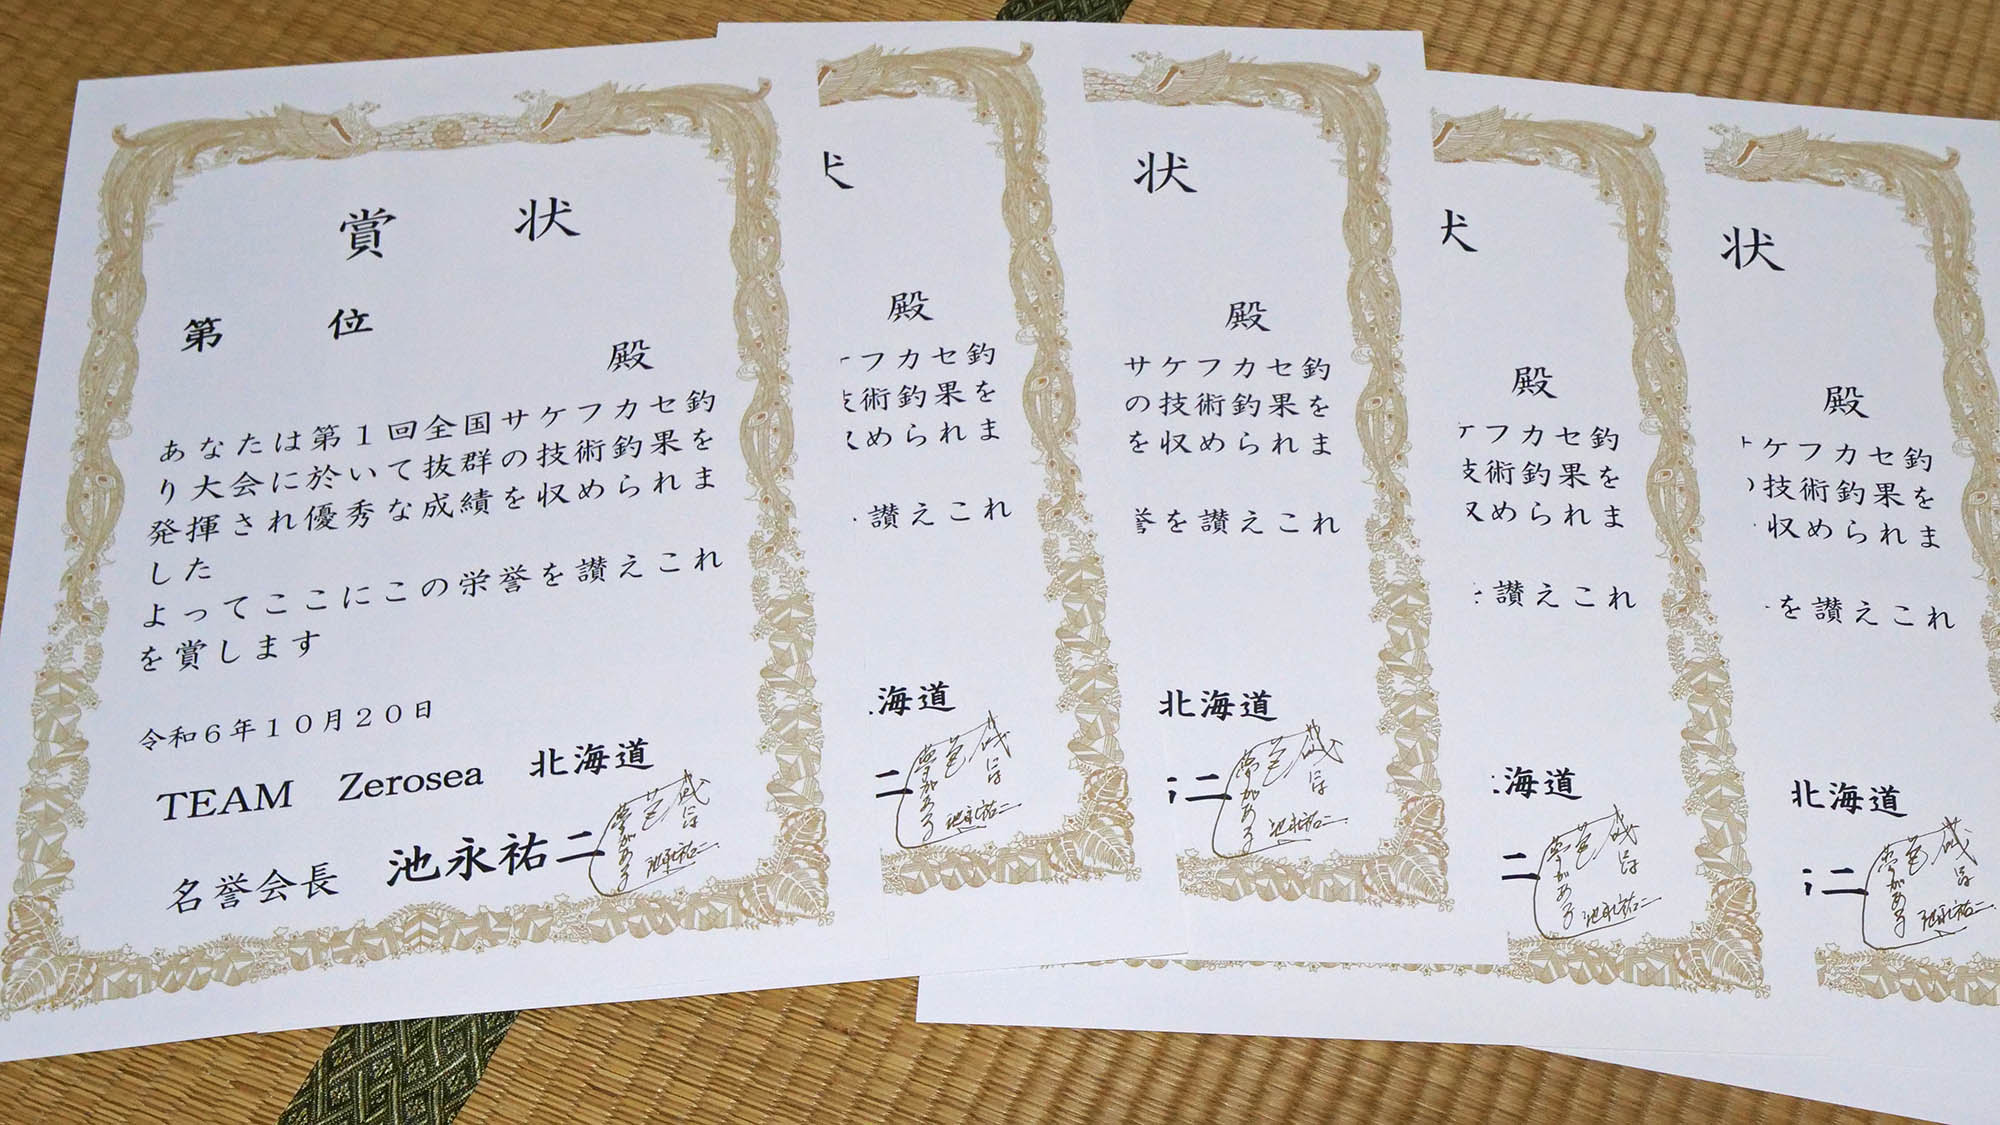 賞 状
第 位
殿
あなたは第1回全国サケフカセ釣
り大会に於いて抜群の技術釣果を
発揮され優秀な成績を収められま
した
よってここにこの栄誉を讃えこれ
を賞します
令和6年10月20日
TEAM Zerosea 北海道
名誉会長 池永祐二
磯には
夢がある
池永祐二
状
殿
フカセ釣
技術釣果を
められま
讃えこれ
海道
二
磯には
夢がある
池永祐二
状
殿
サケフカセ釣
の技術釣果を
を収められま
誉を讃えこれ
北海道
二
磯には
夢がある
池永祐二
状
殿
フカセ釣
技術釣果を
収められま
讃えこれ
海道
二
磯には
夢がある
池永祐二
状
殿
ケフカセ釣
技術釣果を
収められま
を讃えこれ
北海道
二
磯には
夢がある
池永祐二